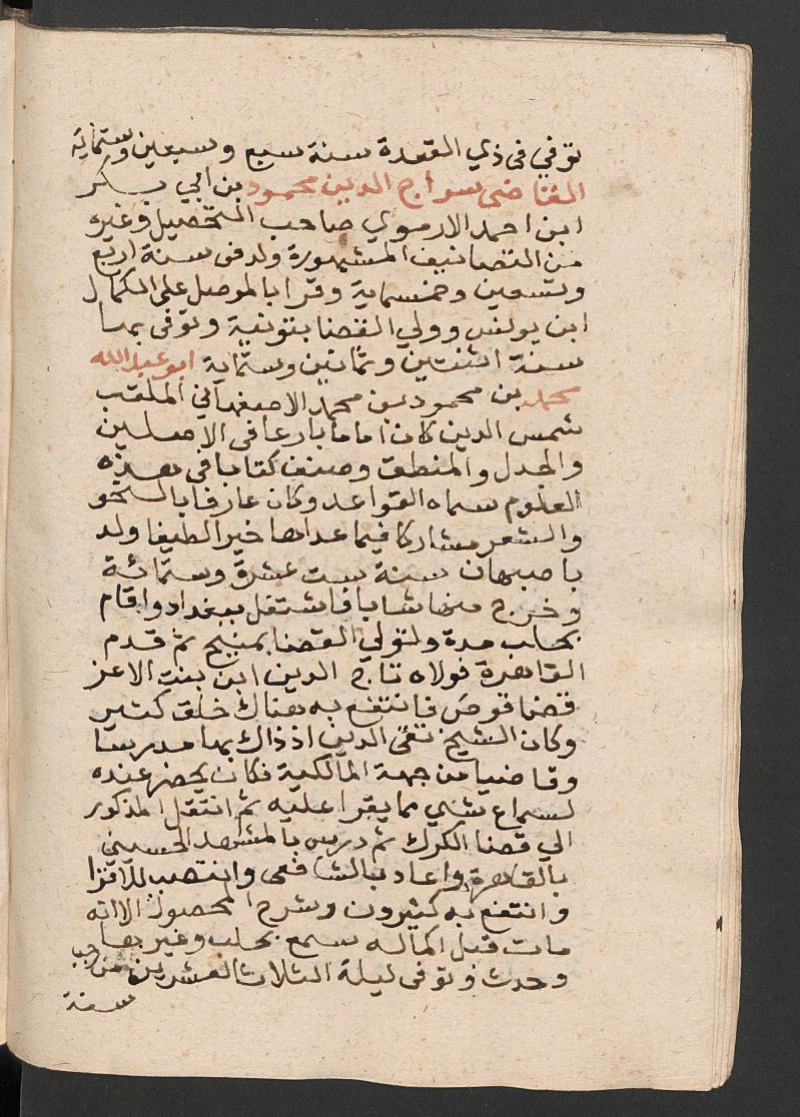 توفي في ذي القعدة سنة سبع وسبعين وستماية
القاضى سراج الدين محمود بن ابي بكر
ابن احمد الارموي صاحب التحصيل وغيره
من التصانيف المشهورة ولد فى سنة اربع
وتسعين وخمسماية وقرا بالموصل على الكمال
ابن يونس وولي القضا بقونية وتوفى بها
سنة اثنتين وثمانين وستماية ابو عبد الله
محمد بن محمود بن محمد الاصفهاني الملقب
شمس الدين كان اماما بارعا فى الاصلين
والجدل والمنطق وصنف كتابا فى هذه
العلوم سماه القواعد وكان عارفا بالنحو
والشعر مشاركا فيما عداها خيرا لطيفا ولد
باصبهان سنة ست عشرة وستمائة
وخرج منها شابا فاشتغل ببغداد واقام
بحلب مدة ولتولي القضا بمنبج ثم قدم
القاهرة فولاه تاج الدين ابن بنت الاعز
قضا قوص فانتفع به هناك خلق كثير
وكان الشيخ تقى الدين اذ ذاك بها مدرسا
وقاضيا من جهة المالكية فكان يحضر عنده
لسماع شي مما يقرا عليه ثم انتقل المذكور
الي قضا الكرك ثم درس بالمشهد الحسيني
بالقاهرة واعاد بالشافعى وانتصب للاقرا
وانتفع به كثيرون وشرح المحصول الا انه
مات قبل اكماله سمع بحلب وغيرها
وحدث وتوفى ليلة الثلاث العشرين من رجب
سنة